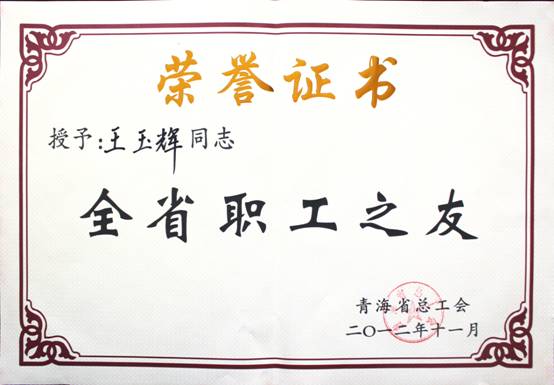 荣誉证书
授予:王玉辉同志
全省职工之友
青海省总工会
二〇一二年十一月